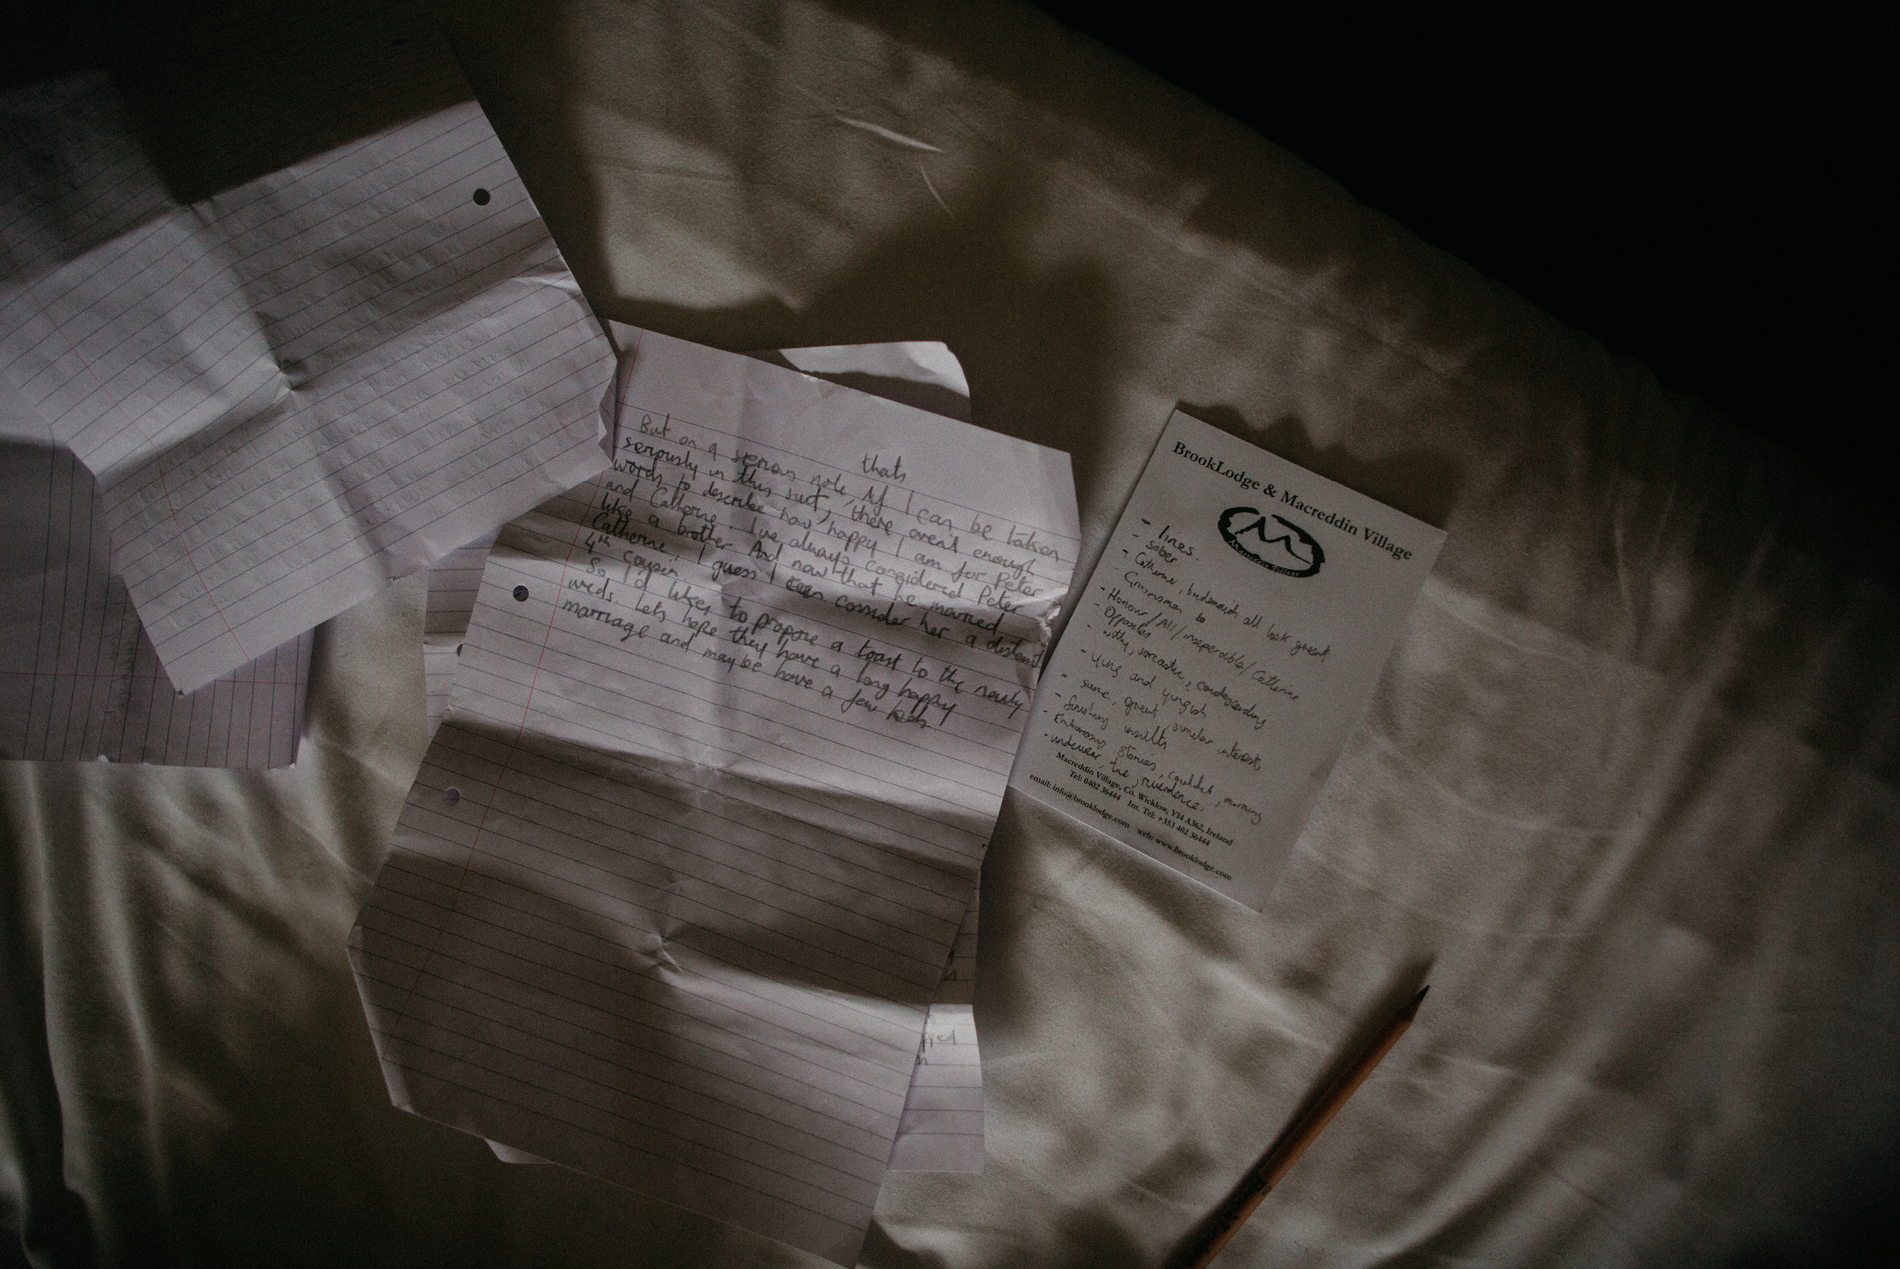 thats
But on a serious note, If I can be taken
seriously in this suit, there aren't enough
words to describe how happy I am for Peter
and Catherine. I've always considered Peter
like a brother And now that he married
Catherine, I guess I can cosider her a distent
4th cousin.
So I'd likes to propose a toast to the newly
weds. Lets hope they have a long happy
marriage and maybe have a few kids.
BrookLodge & Macreddin Village
Macreddin Village
- lines.
- sober
- Catherine, bridesmaids all look great
- Groomsmen to
- Honour/All/inseperable/Catherine
- Opposites
- witty, sarcastic, condesending
- ying and yingish
- same, great, similar interests,
- finishing insults
- Embarrassing stories, morning
- underwear, the
Macreddin Village, Co. Wicklow, Y14 A362, Ireland
Tel: 0402 36444 Int. Tel: +353 402 36444
email: info@brooklodge.com web: www.brooklodge.com